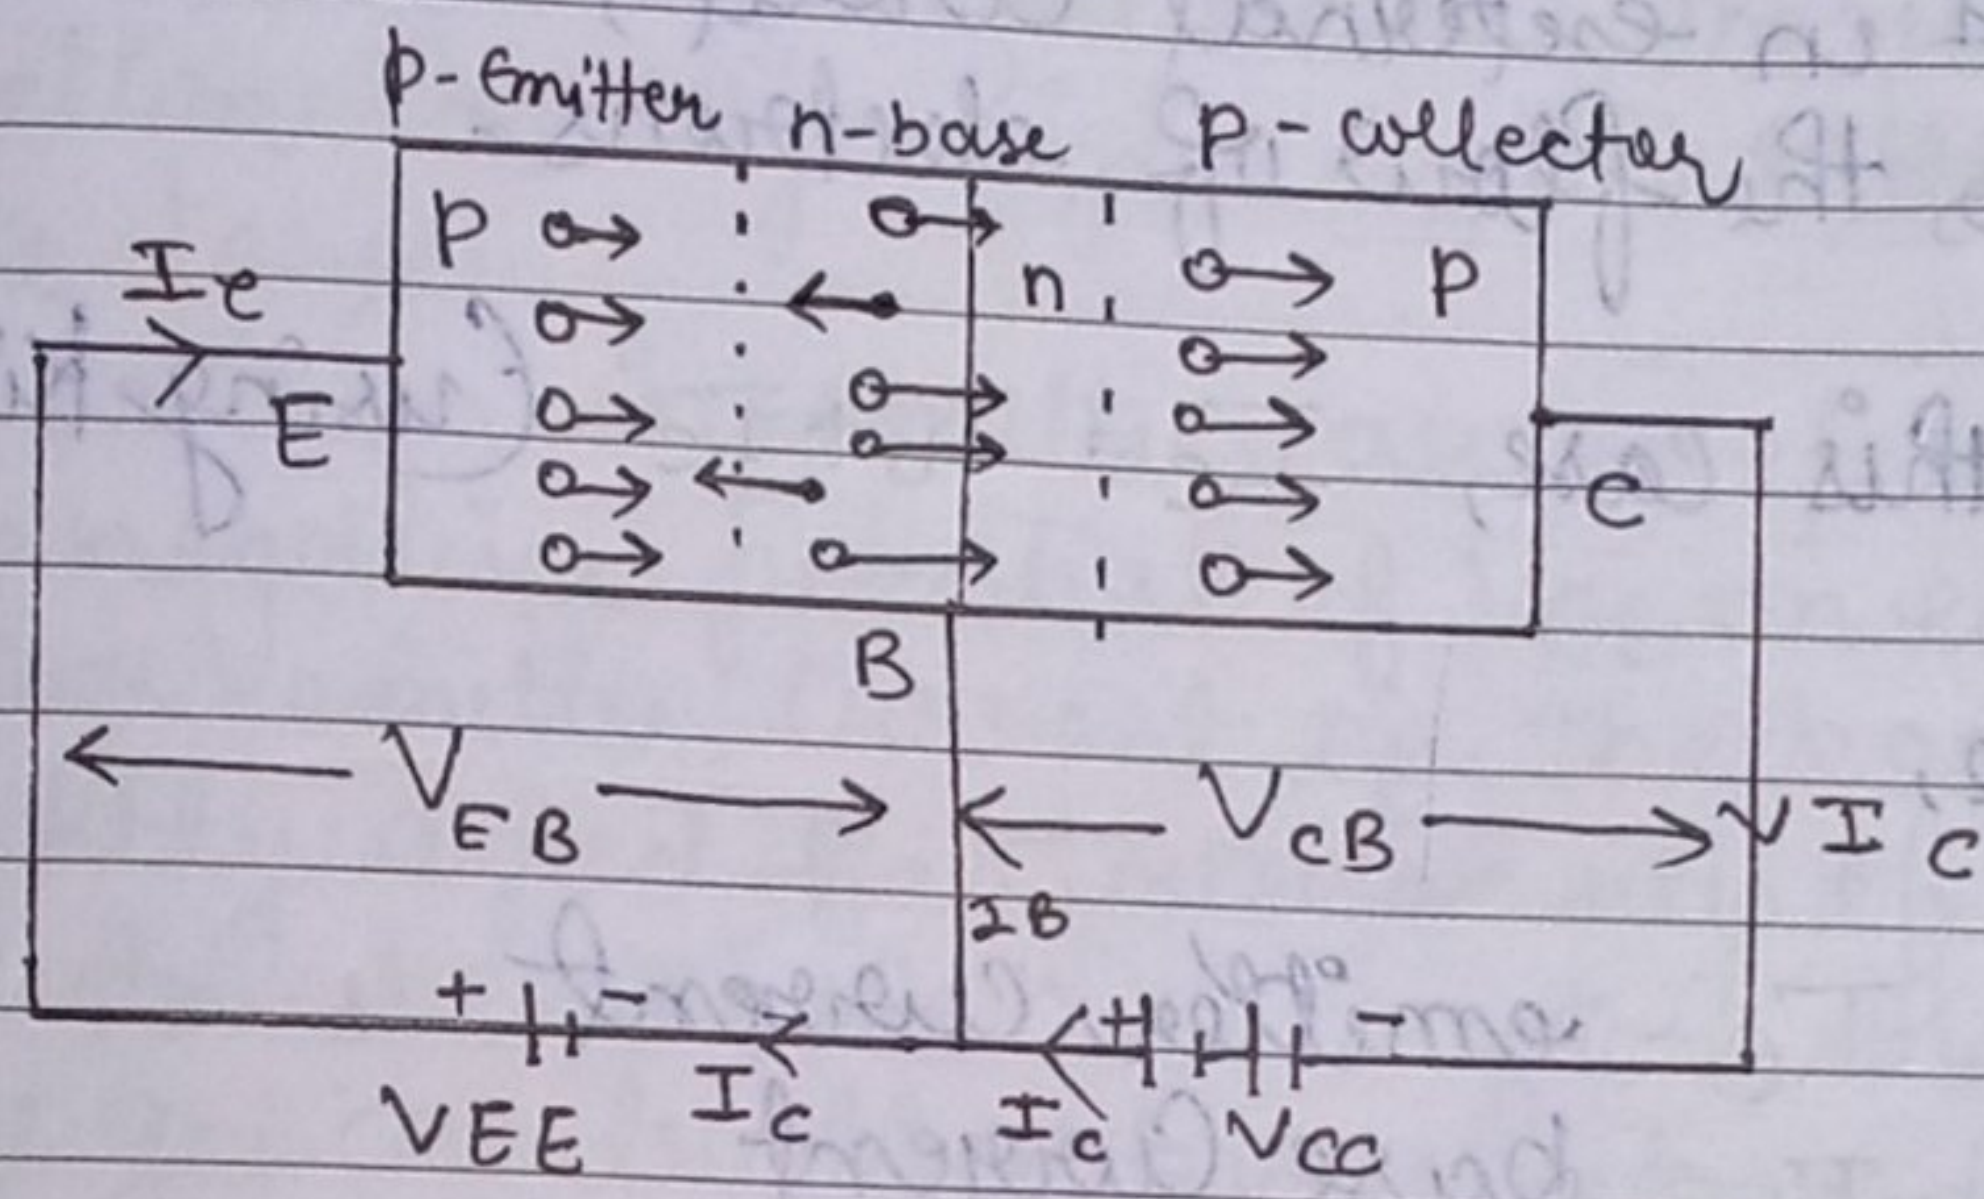 p-Emitter n-base p-collector
P n P
Ie
E
C
B
VEB VCB IC
IB
+ - + -
VEE Ic Ic VCC